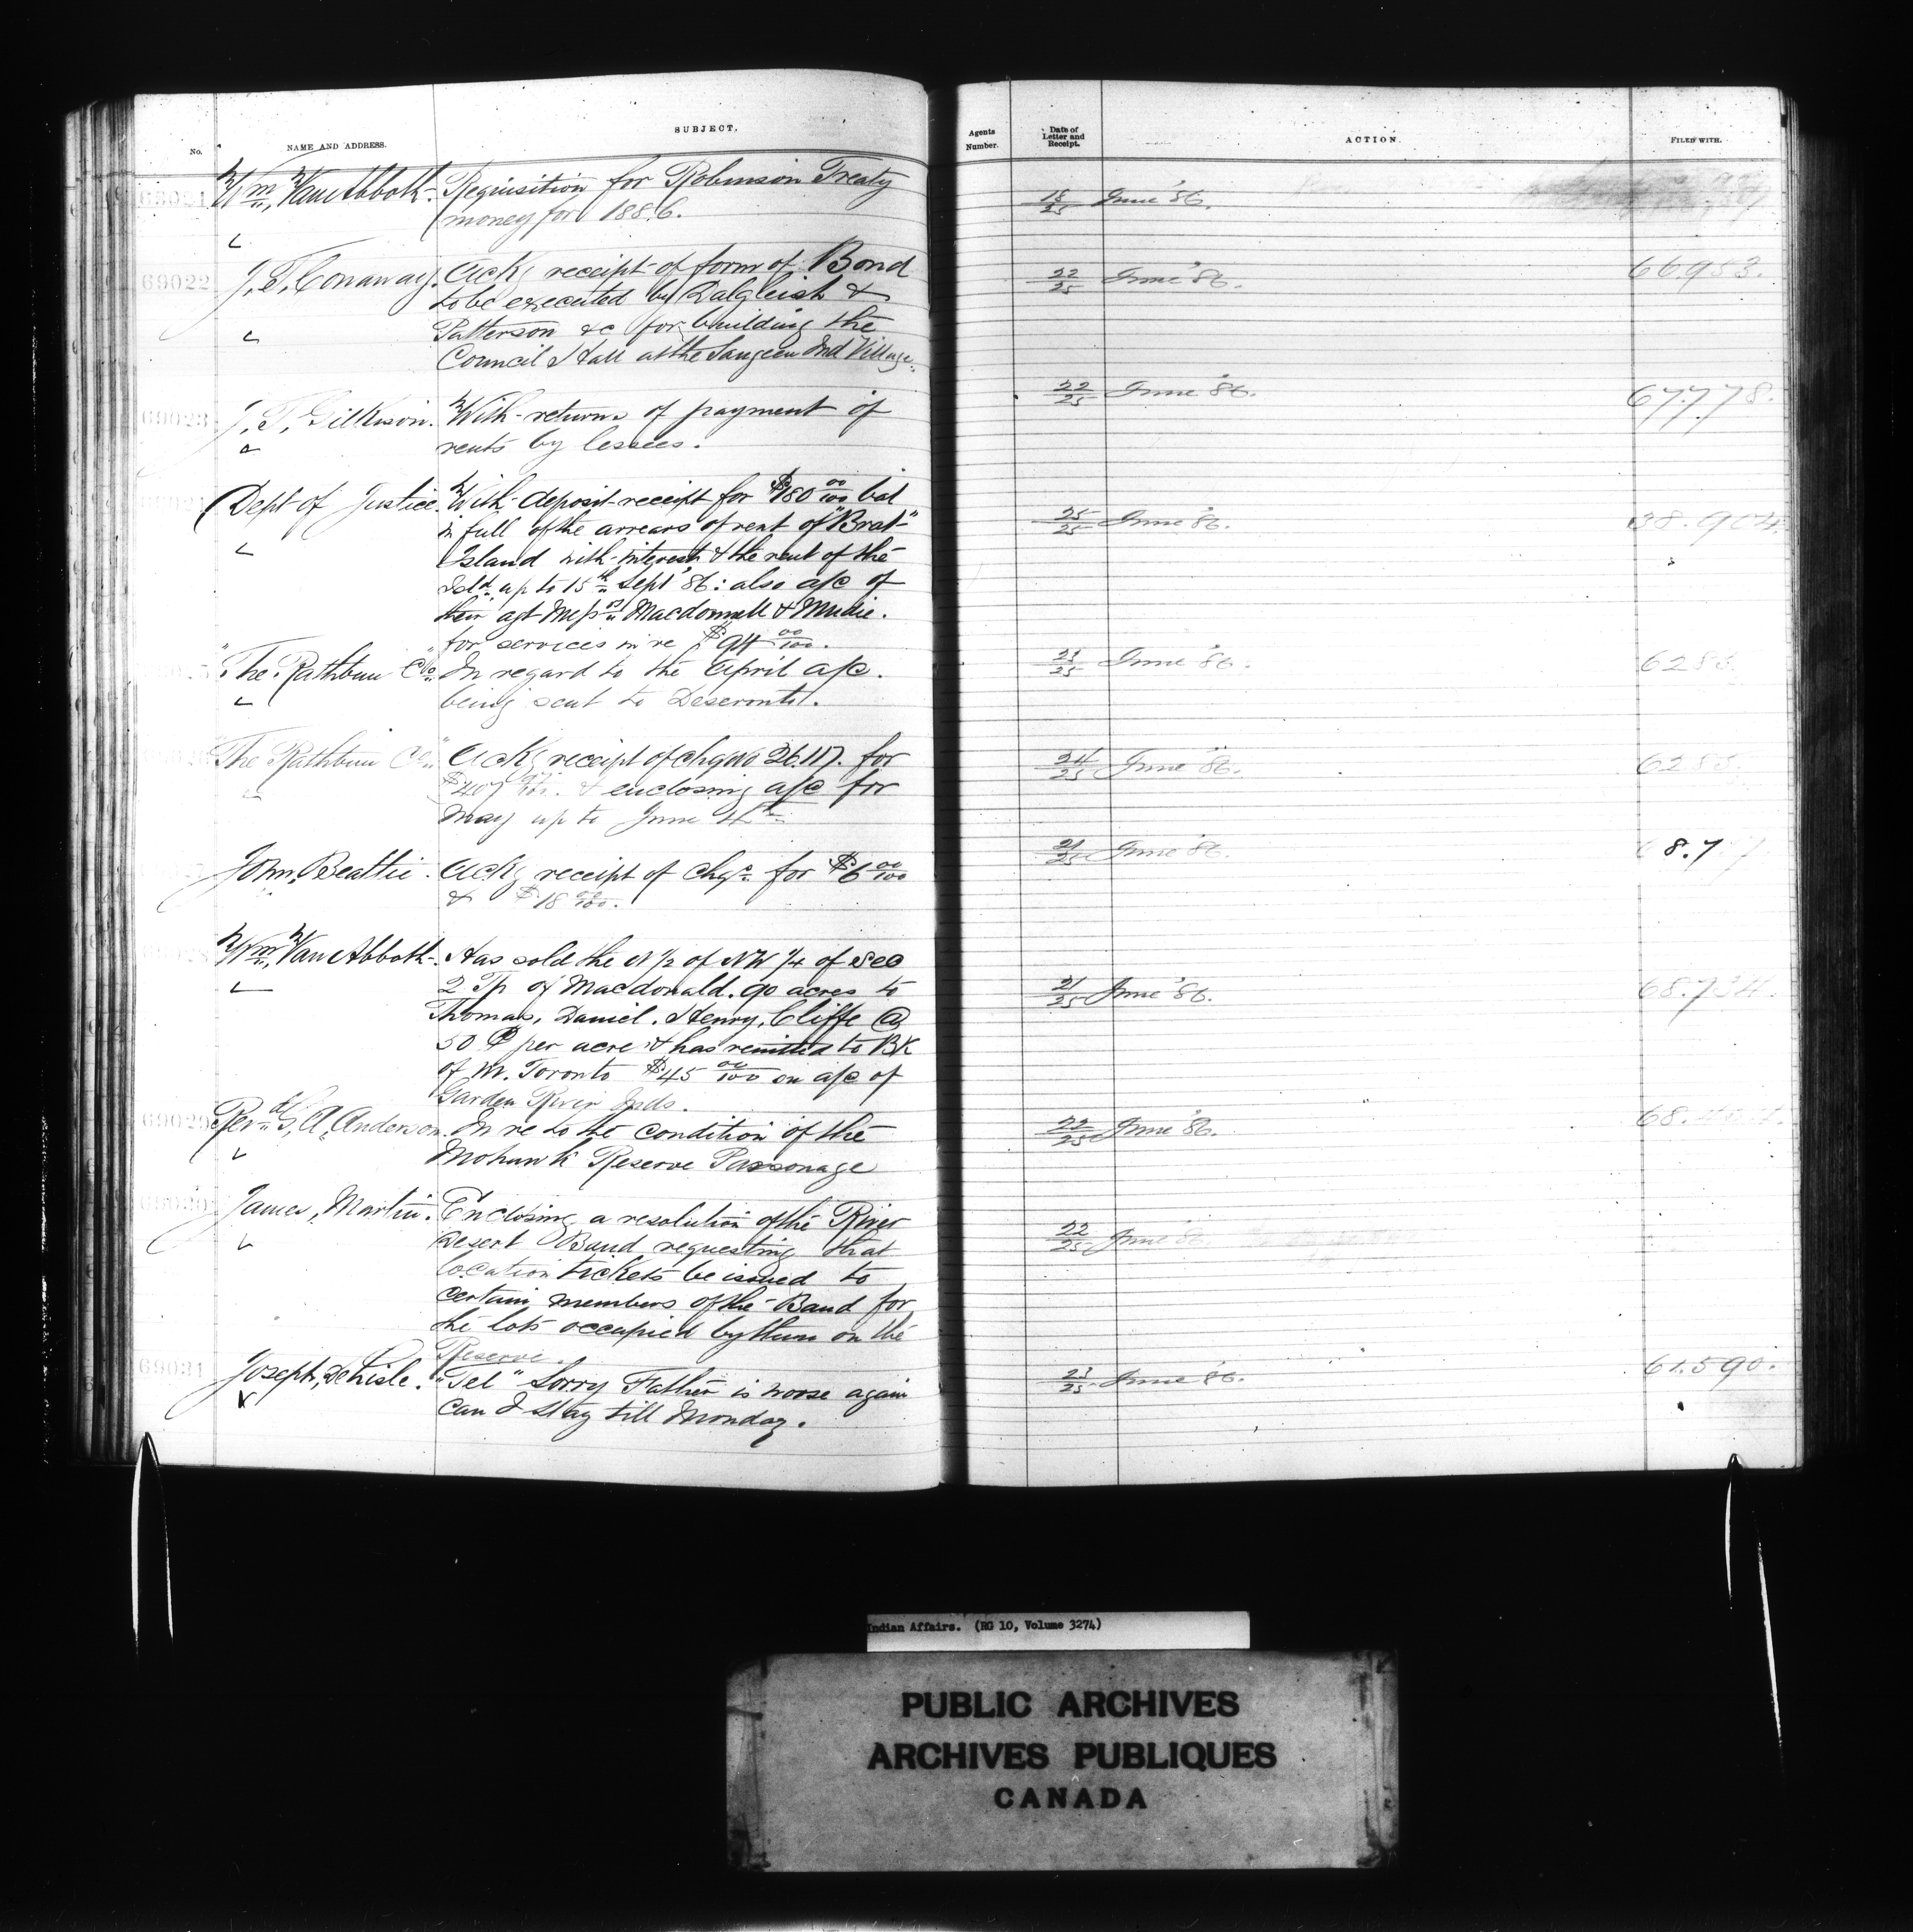 No.
NAME AND ADDRESS.
SUBJECT.
Agents Number.
Date of Letter and Receipt.
ACTION.
FILED WITH.
69021 Wm. Van Abbott. Requisition for Robinson Treaty
money for 1886.
18/25 June '86.
69022 J. T. Conaway. Ackg receipt of form of Bond
to be executed by Dalgleish &
Patterson &c for building the
Council Hall at the Saugeen Ind Village.
22/25 June '86. 66953.
69023 J. T. Gilkison. With returns of payment of
rents by lessees.
22/25 June '86. 67778.
Dept of Justice. With deposit receipt for $180 00/100 bal
in full of the arrears of rent of "Brat"
Island with interest & the rent of the
Isld. up to 15th Sept '86: also a/c of
their agt Messrs Macdonnell & Mudie.
for services in re $94 00/100.
25/25 June '86. 38.904.
"The Rathbun Co" In regard to the April a/c.
being sent to Deseronto.
June '86. 6283.
"The Rathbun Co" Ackg receipt of chq No 26117. for
& enclosing a/c for
May up to June 4th
24/25 June '86. 6283.
John Beattie. Ackg receipt of chqs. for $6 00/100
& $18 00/100.
21/25 June '86.
Wm. Van Abbott. Has sold the N 1/2 of NW 1/4 of Sec
2 Tp of Macdonald. 90 acres to
Thomas, Daniel, Henry, Cliffe @
50 ¢ per acre & has remitted to BK
of M. Toronto $45 00/100 on a/c of
Garden River Inds.
21/25 June '86. 68.734.
69029 Revd. G. A. Anderson. In re to the condition of the
Mohawk Reserve Parsonage
22/25 June '86.
69030 James Martin. Enclosing a resolution of the River
Desert Band requesting that
location tickets be issued to
certain members of the Band for
the lots occupied by them on the
Reserve.
22/25 June '86.
69031 Joseph Delisle. "Tel" Sorry Father is worse again
can I stay till Monday.
23/25 June '86. 61.590.
Indian Affairs. (RG 10, Volume 3274)
PUBLIC ARCHIVES
ARCHIVES PUBLIQUES
CANADA